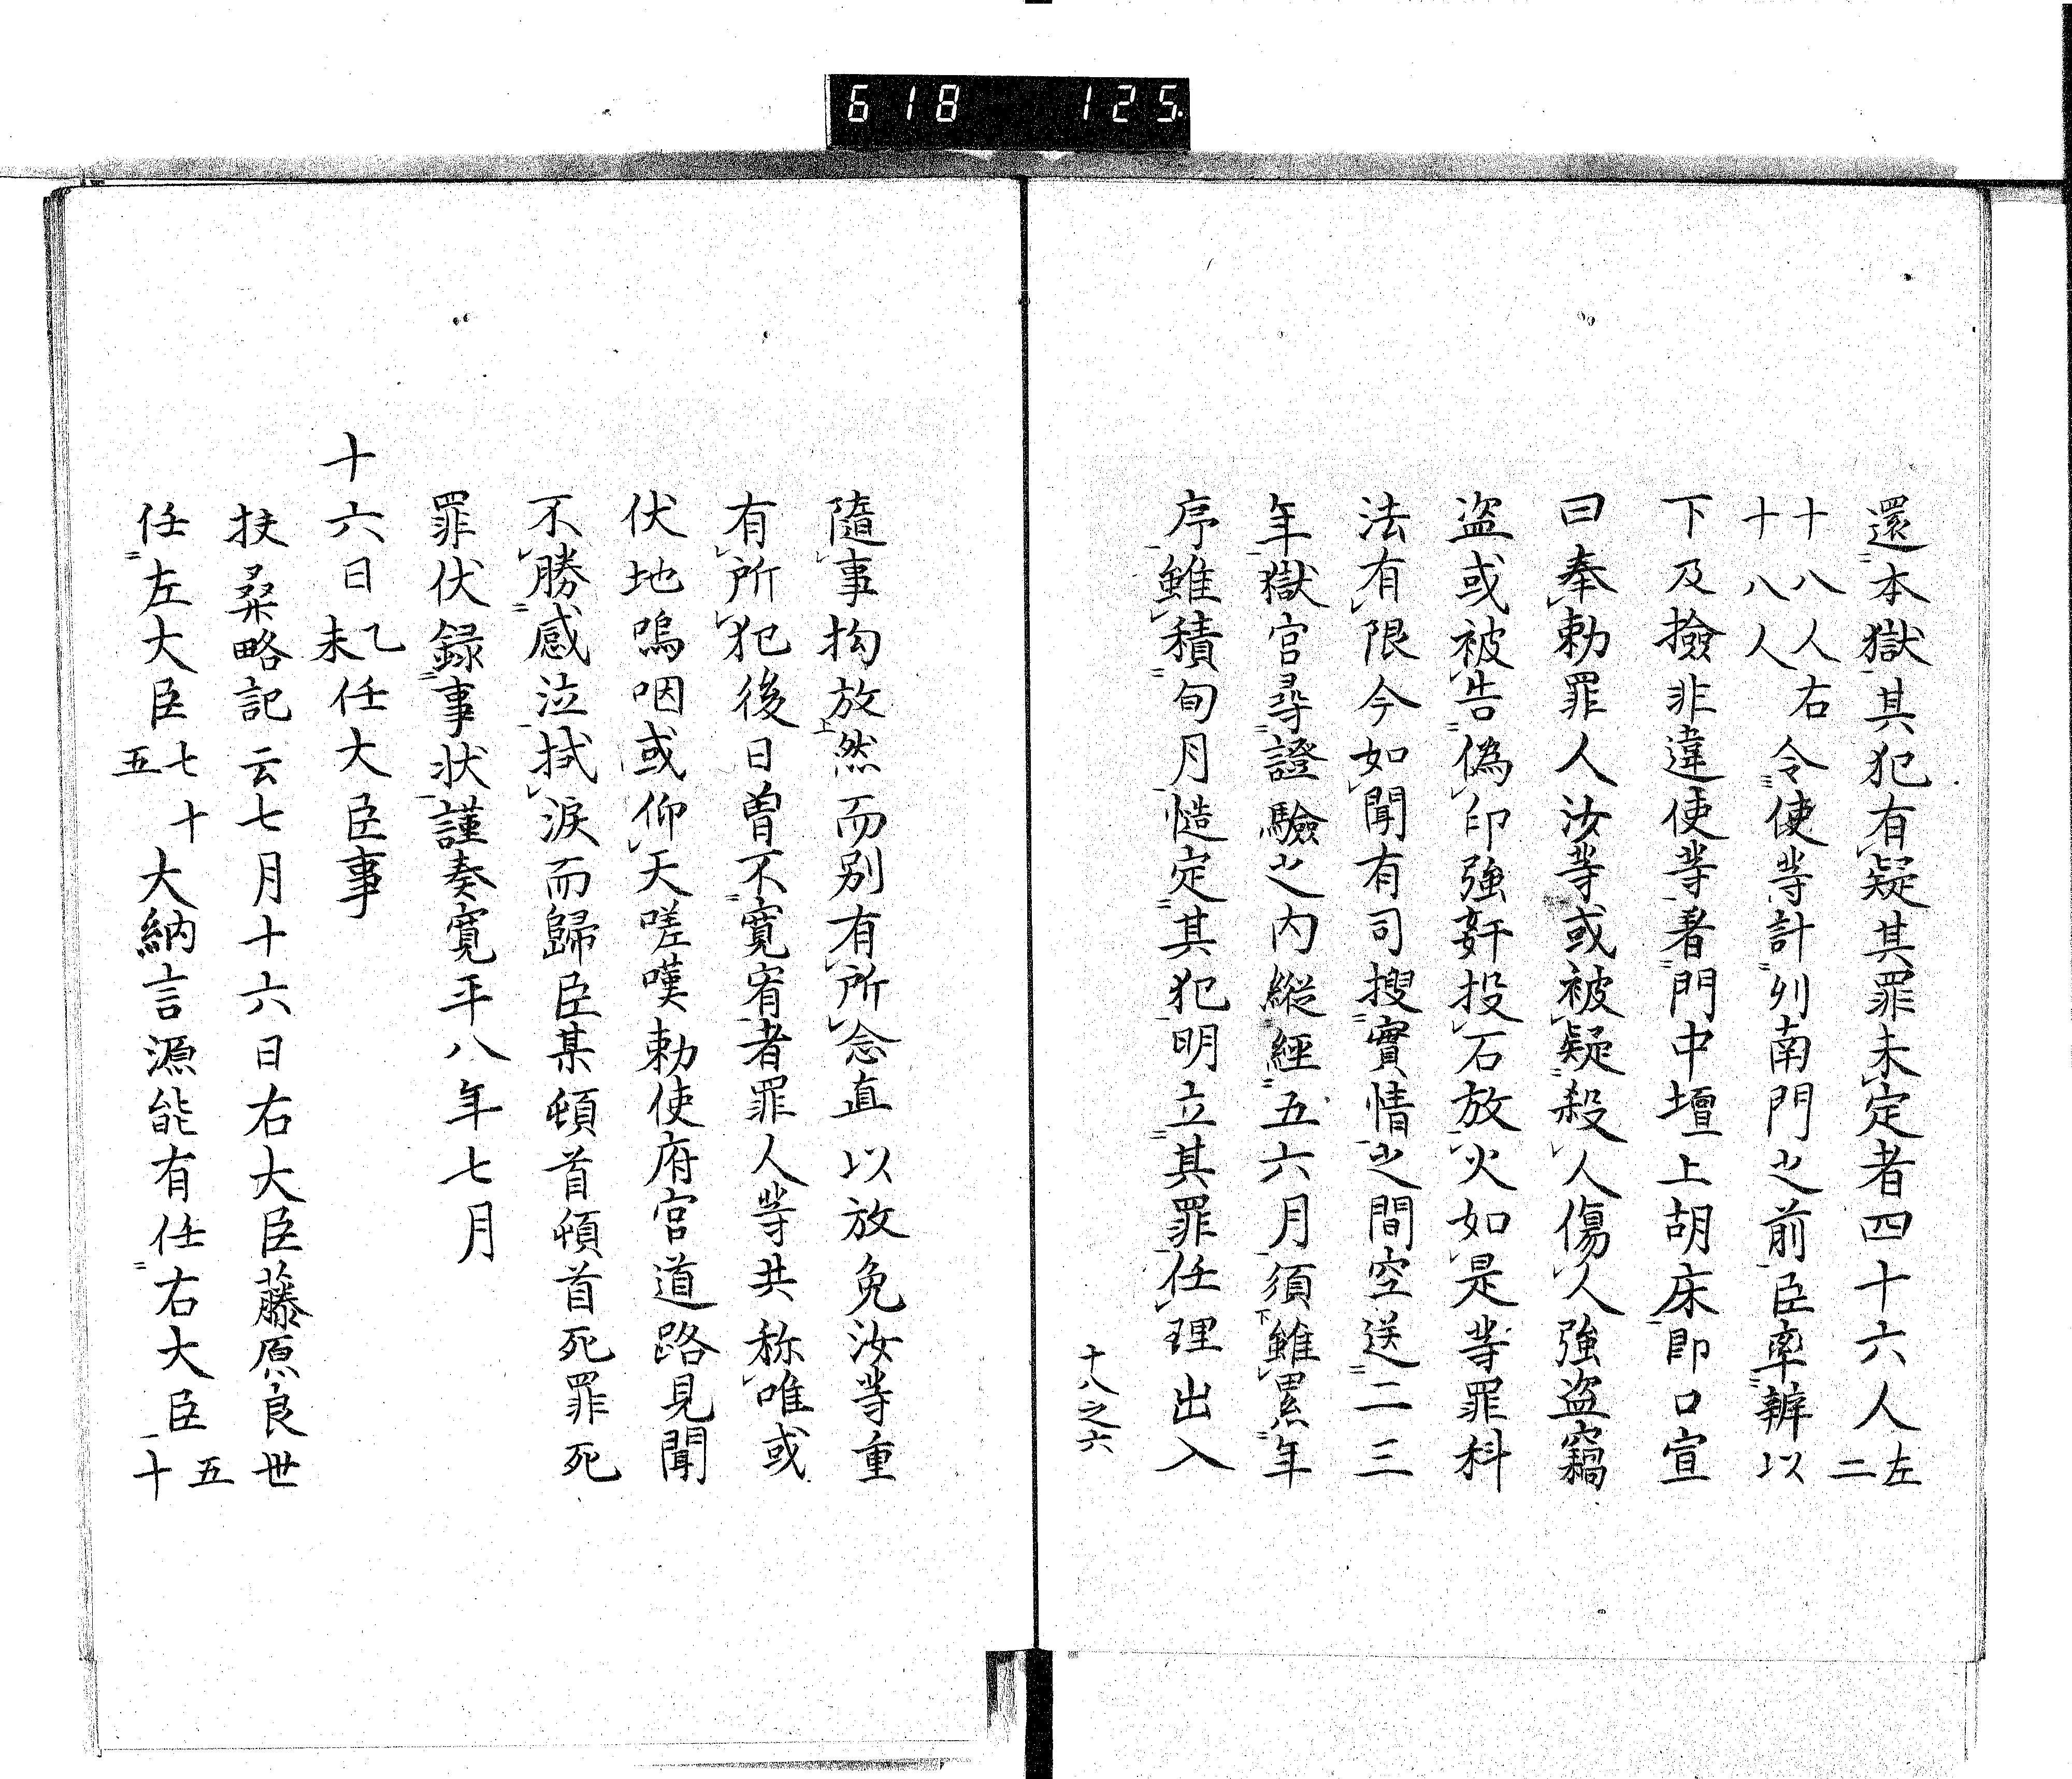 618 125.
還本獄其犯有疑其罪未定者四十六人左二
十八人右十八人令使等計列南門之前臣率辨以
下及撿非違使等着門中壇上胡床即口宣
曰奉勅罪人汝等或被疑殺人傷人強盗竊
盗或被告偽印強姧投石放火如是等罪科
法有限今如聞有司搜實情之間空送二三
年獄官尋證驗之内縦經五六月須雖累年
序雖積旬月慥定其犯明立其罪任理出入
十八之六
隨事拘放然而別有所念直以放免汝等重
有所犯後日曽不寛宥者罪人等共称唯或
伏地嗚咽或仰天嗟嘆勅使府官道路見聞
不勝感泣拭涙而歸臣某頓首頓首死罪死
罪伏録事状謹奏寛平八年七月
十六日乙未任大臣事
扶桑略記云七月十六日右大臣藤原良世
任左大臣七十五大納言源能有任右大臣五十